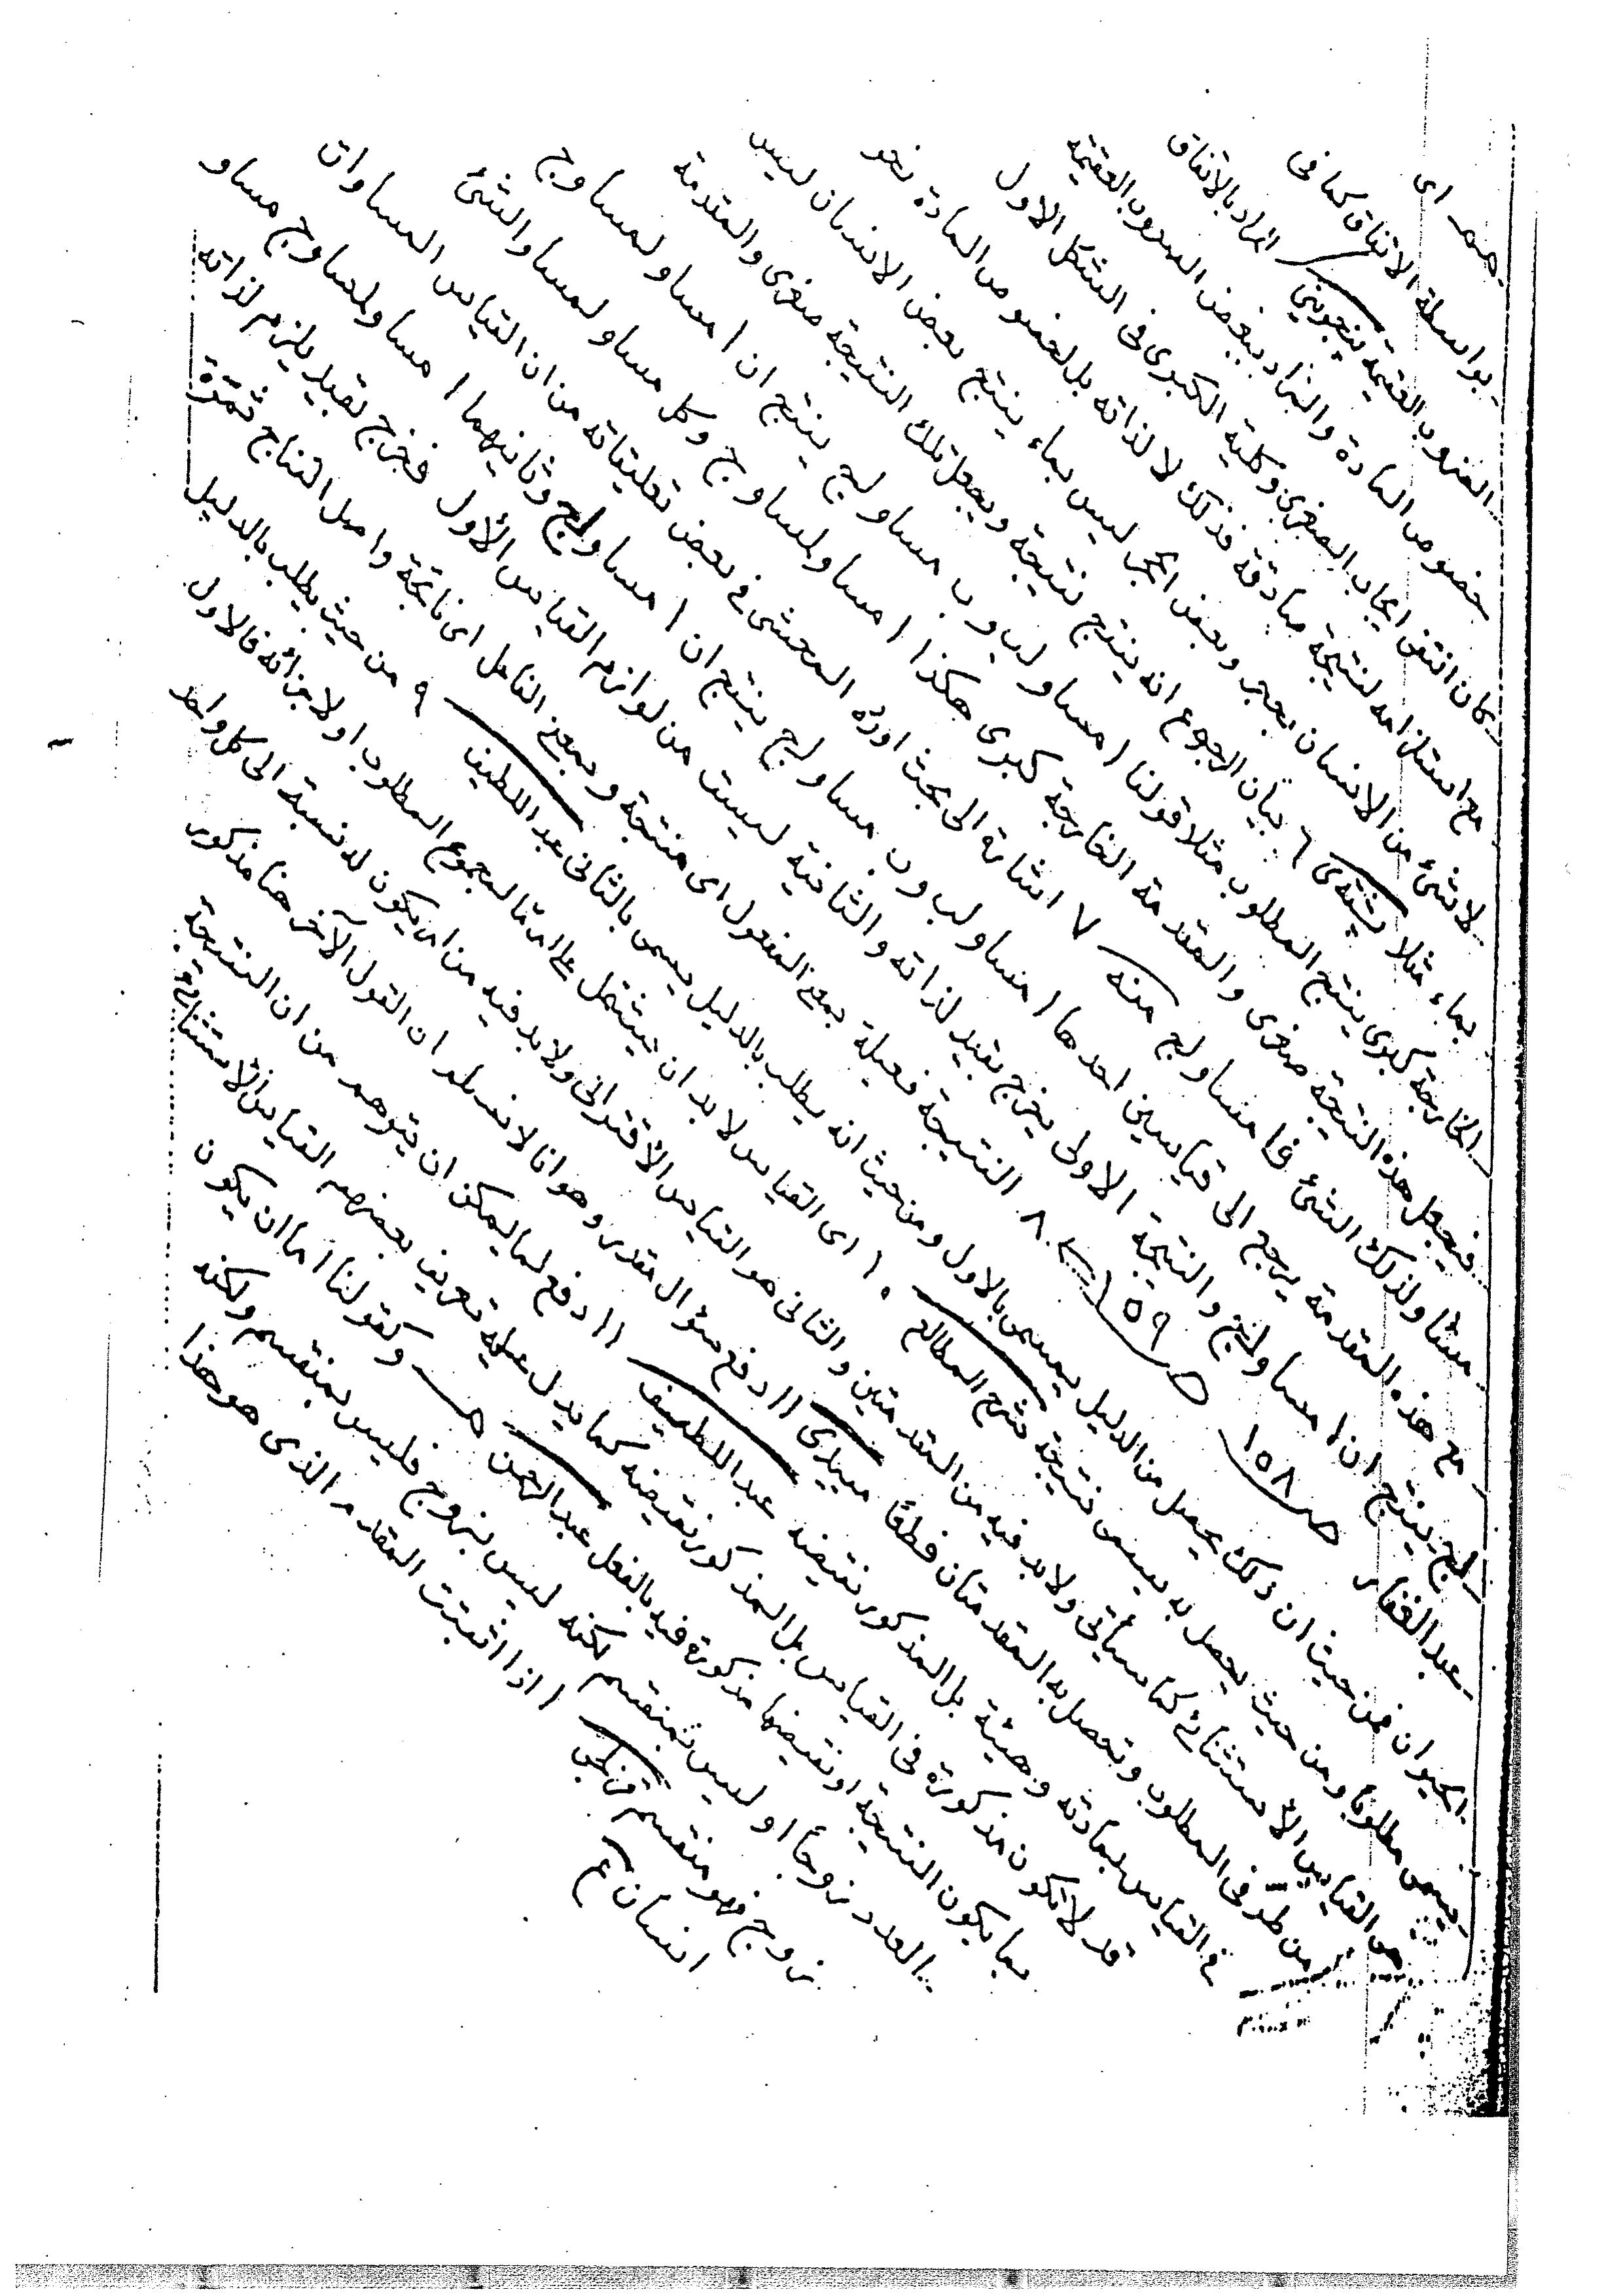 همـ اى
بواسطة الاتفاق كما فى
الضروب العقيمة ينجوينى المراد بالاتفاق
خصوص المادة والمراد ببعض الضروب العقيمة
كان انتفى ايجاب الصغرى وكلية الكبرى فى الشكل الاول
مع استلزامه لنتيجة صادقة فذلك لا لذاته بل لخصوص المادة نحو
لا شئ من الانسان بحجر وبعض الحجر ليس بماء ينتج بعض الانسان ليس
بماء مثلا ٦ بيان الرجوع انه ينتج نتيجة ويجعل تلك النتيجة صغرى والمقدمة
الخارجة كبرى ينتج المطلوب مثلا قولنا ا مساو لب وب مساو لج ينتج ان ا مساو لمساو ج
فيجعل هذه النتيجة صغرى والمقدمة الخارجة كبرى هكذا ا مساو لمساو ج وكل مساو لمساو الشئ
مساو لذلك الشئ فا مساو لج منه ٧ اشارة الى بحث اورده المحشى فى بعض تعليقاته من ان القياس المساوات
مع هذه المقدمة يرجع الى قياسين احدها ا مساو لب وب مساو لج ينتج ان ا مساو لج وثانيهما ا مساو لمساو ج مساو
لج ينتج ان ا مساو لج والنتيجة الاولى يخرج بقيد لذاته والثانية ليست من لوازم القياس الأول فخرج بقيد يلزم لذاته
عبد الغفار صـ ١٥٨ صـ ١٥٩ ٨ النتيجة فعيلة بمعنى المفعول اى منتجة وبمعنى الفاعل اى ناتجة واصل النتاج ثمرة
الحيوان فمن حيث ان ذلك يحصل من الدليل يسمى بالاول ومن حيث انه يطلب بالدليل يسمى بالثانى عبد اللطيف ٩ من حيث يطلب بالدليل
يسمى مطلوبا ومن حيث يحصل به يسمى نتيجة شرح المطالع ١٠ اى القياس لا بد ان يشتمل على امر ما لمجموع المطلوب او لاجزائه فالاول
هو القياس الاستثنائى كما سيأتى ولا بد فيه من المقدمتين والثانى هو القياس الاقترانى ولا بد فيه من امر يكون له نسبة الى كل واحد
من طرفى المطلوب وتحصل به المقدمتان قطعا ميبدى ١١ دفع سؤال مقدر وهو انا لا نسلم ان القول الآخر هنا مذكور
فى القياس بمادته وهيئة بل المذكور نقيضه عبد اللطيف ١١ دفع لما يمكن ان يتوهم من ان النتيجة
قد لا تكون مذكورة فى القياس بل المذكور نقيضه كما يدل عليه تعريف بعضهم القياس الاستثنائى
بما يكون النتيجة او نقيضها مذكورة فيه بالفعل عبد الرحمن هـ وكقولنا اما ان يكون
العدد زوجا او ليس بمنقسم لكنه ليس بزوج فليس بمنقسم ولكنه
زوج فهو منقسم قزلجى ا اذا اثبتت المقدم الذى هو هذا
انسان ع